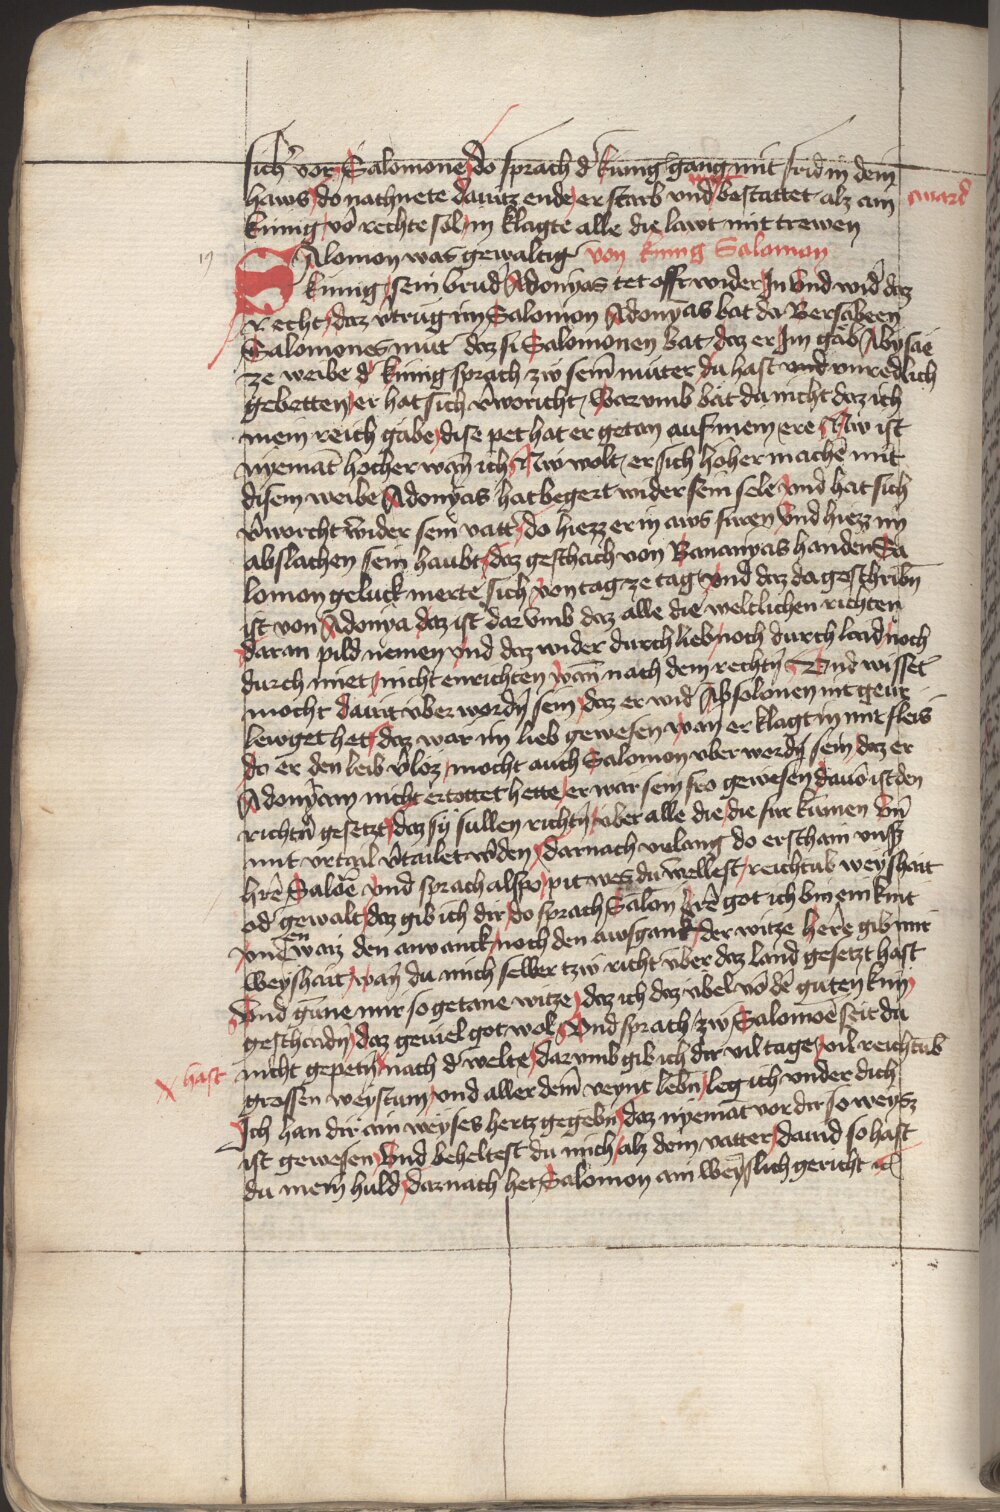 sich vor Salomone do sprach d' kunig gang mit frid in dein
haws do nachnete dauitz ende er starb vnd bestattet alz ain
ward
kunig vō rechte sol in klagte alle die lawt mit trewen
SAlomon was gewaltig von kunig Salomon
kunig sein brud' Adonyas tet offt wider In Vnd wid' daz
Recht daz v'trug im Salomon Adonyas bat da Bersabeen
Salomones mut' daz si Salomonen bat daz er Im gäb Abysae
ze weibe d' kunig sprach zw sein' muter du hast vnredlich
gebetten er hat sich v'woricht Warvmb bat du nicht daz ich
mein reich gäbe dise pet hat er getan auf mein ere Nw ist
nyemāt hocher wān ich Nw wolt er sich höher machē mit
disem weibe Adonyas hat begert wider sein sele vnd hat sich
v'worcht wider sein vatt' do hiezz er in aws furen Vnd hiezz im
abslachen sein haubt daz geschach von Bananyas handen Sa
lomon geluck merte sich von tag ze tag vnd daz da geschribn
ist von Adonya daz ist dar vmb daz alle die weltlichen richter
daran pild nemen vnd daz wider durch lieb noch durch laid noch
durch miet nicht enrichten wan nach dem rechtn Vnd wisset
mocht dauit vber wordn sein daz er wid' Absolonen nit geur
lewget het daz war im lieb gewesen wan er klagt in mit fleis
do er den leib v'loz mocht auch Salomon vber werdn sein daz er
Adonyam nicht ertottet hette er war sein fro gewesen dauō ist den
richtn gesetzt daz sy sullen richtn vber alle die die fur kumen vn
mit vrtail v'tailet w'den darnach vnlang do erschain vnss'
h're Saloē vnd sprach also pit wes du wellest reichtub weyshait
od' gewalt daz gib ich dir do sprach Salon h're got ich bin ein kint
vnd en waiz den anvanck noch den awsgank der witze h're gib mir
weyshait wan du mich selber tzw richt vber daz land gesetzt hast
Vnd gune mir so getane witze daz ich daz vbel vō dē guten kun
geschaidn daz geuiel got wol Vnd sprach zw Salomoē seit du
hast
nicht gepetn nach d' welte darvmb gib ich dir vil tage vil reichtub
grossen weystum vnd aller dein' veynt lebn leg ich vnder dich
Ich han dir ain weyses hertz gegebn daz nyemāt vor dir so weysz
ist gewesen Vnd beheltest du mich alz dein vatter dauid so hast
du mein huld darnach het Salomon ain weyslich gericht